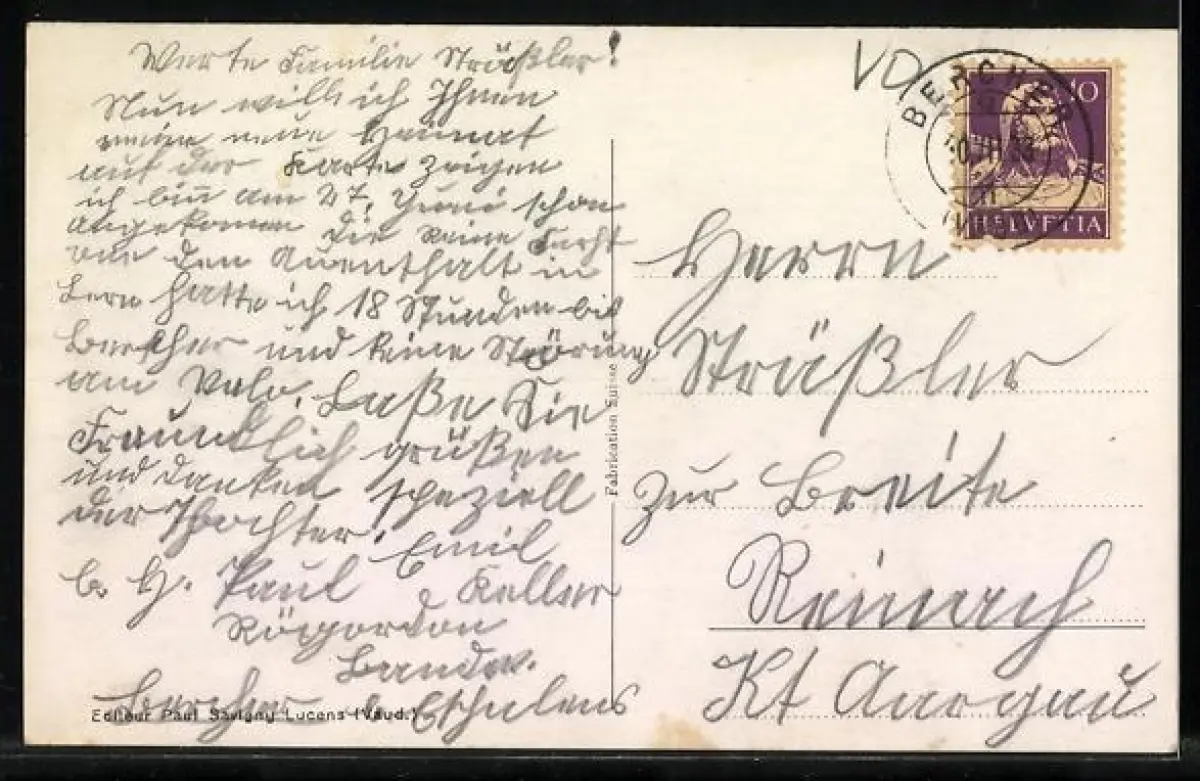 Werte Familie Sträßler!
Nun will ich Ihnen
meine neue Heimat
auf der Karte zeigen
ich bin am 27. Juni schon
angekommen die keine
den Auenthalt in
Bern hatte ich 18 Stunden bis
Bercher und keine Störung
am Velo. Laße Sie
Freundlich grüßen
und danken speziell
der Thochter. Emil
b. H. Paul Keller
Bercher Echalens
Editeur Paul Savigny Lucens (Vaud.)
Fabrication Suisse
VD
BERCHER
10
HELVETIA
Herrn
Sträßler
zur Breite
Reinach
Kt Aargau